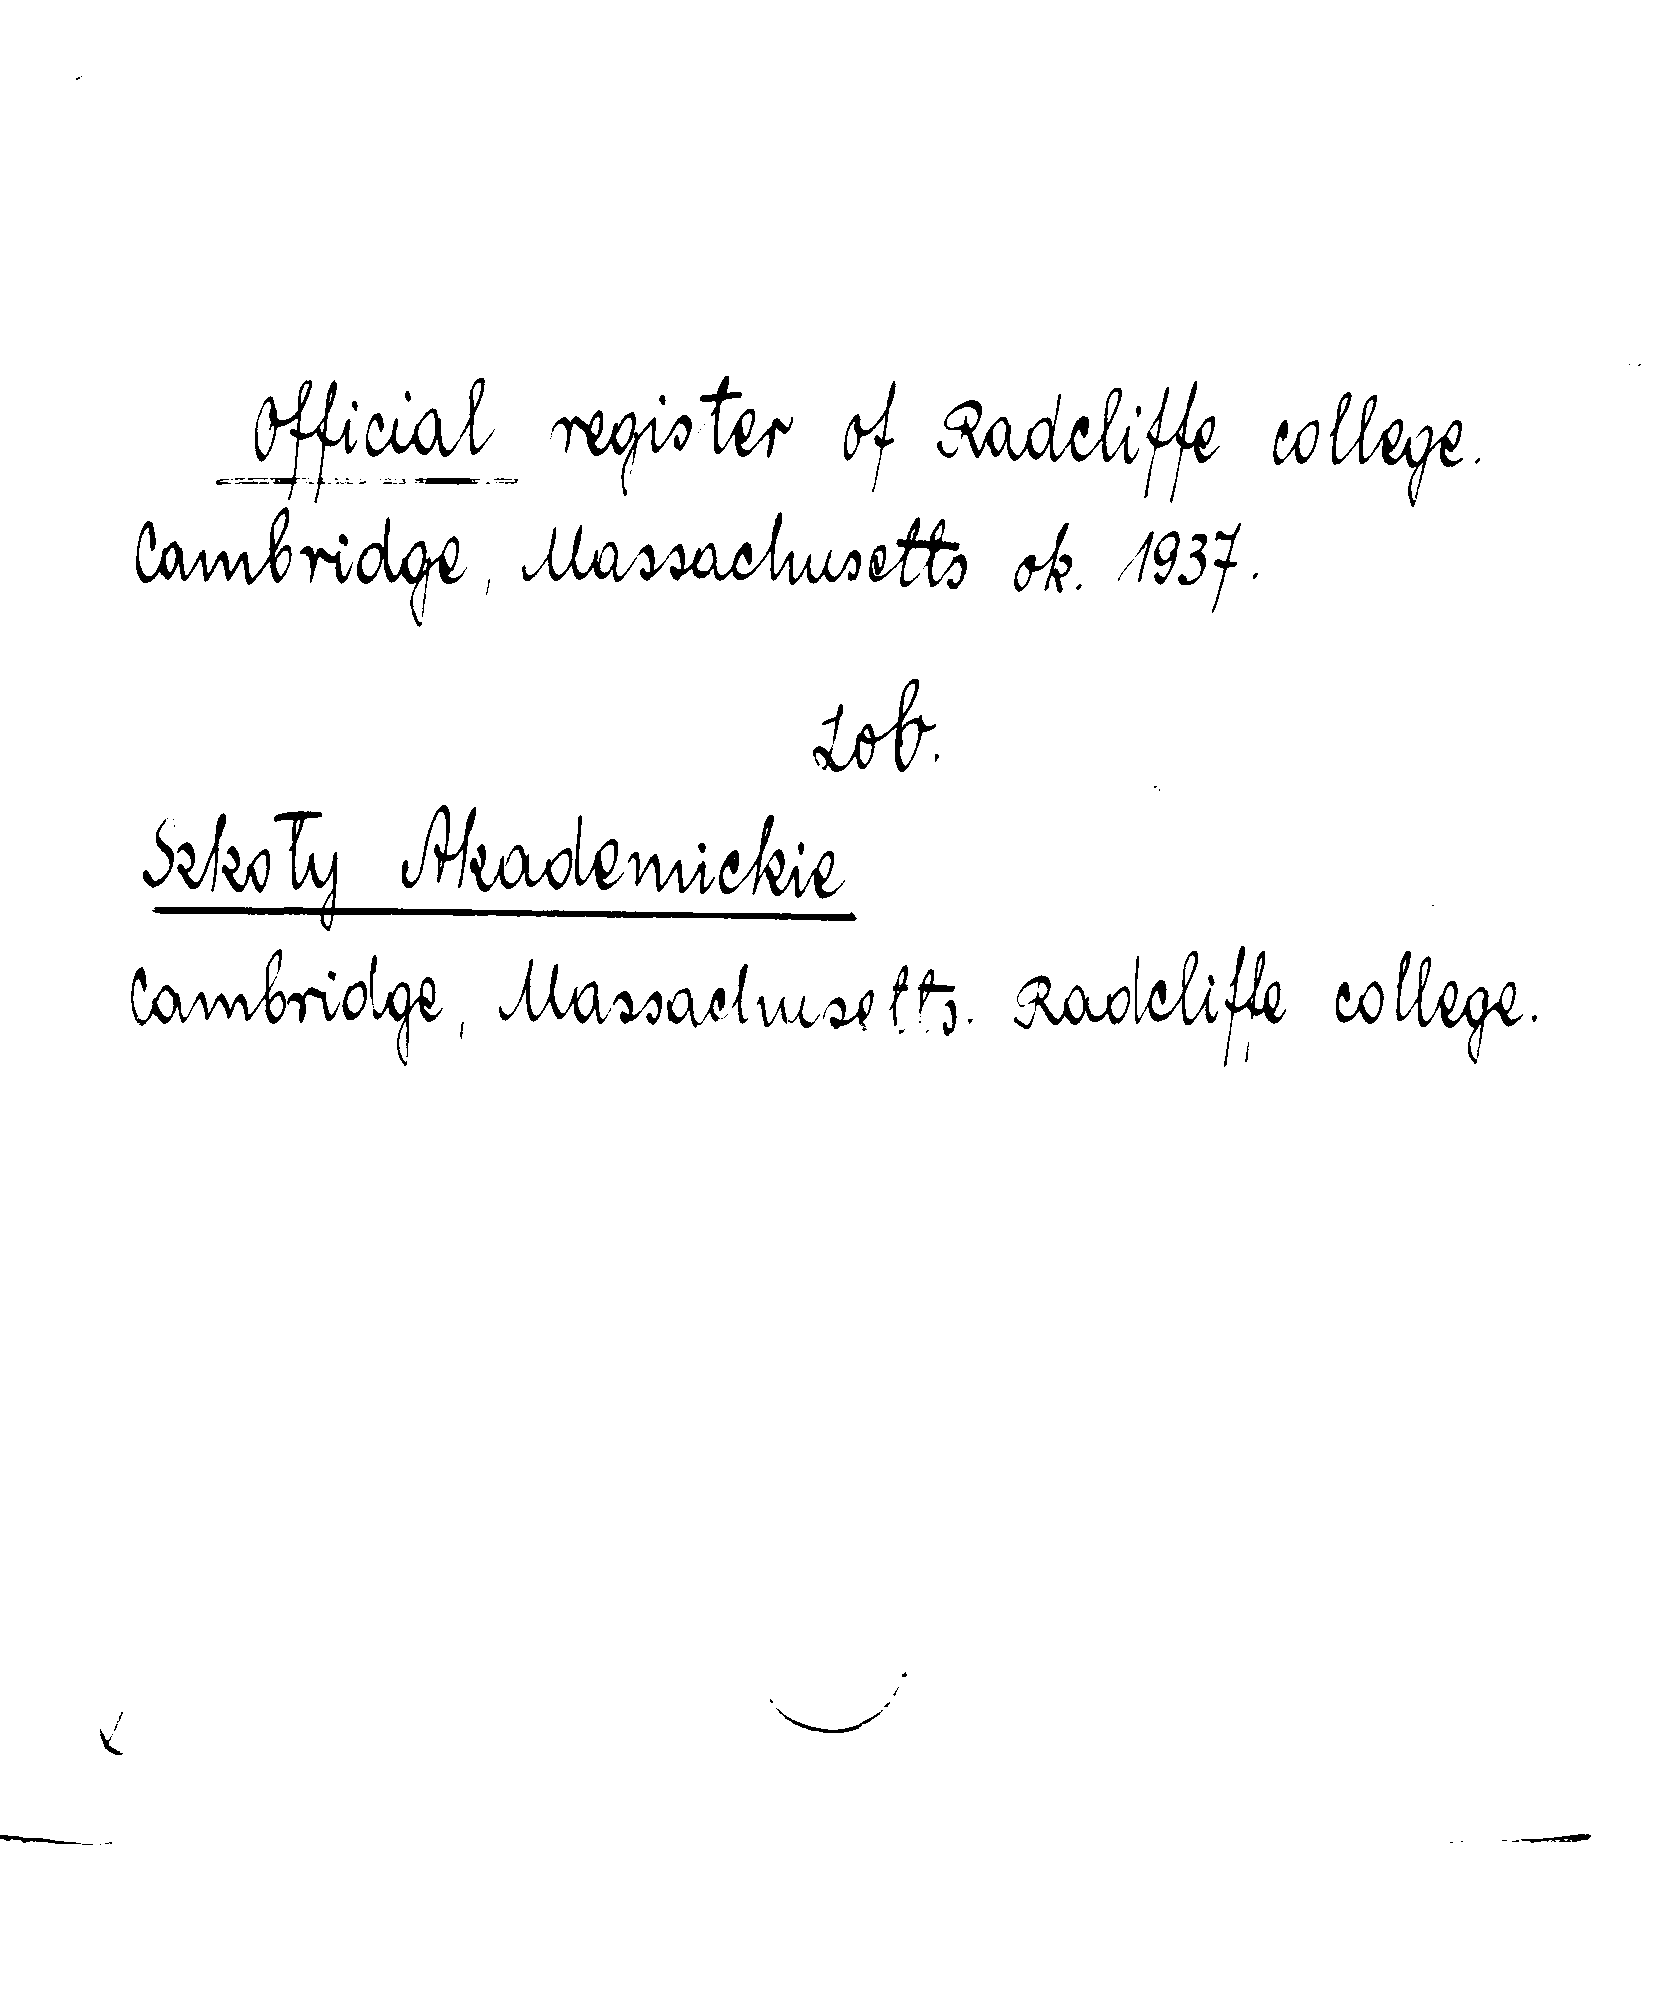 Official register of Radcliffe college.
Cambridge, Massachusetts ok. 1937.
zob.
Szkoły Akademickie
Cambridge, Massachusetts. Radcliffe college.